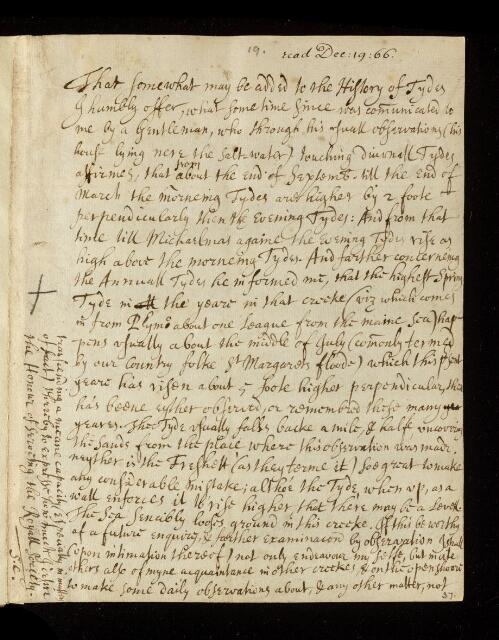 19.
read Dec: 19: 66.
That somewhat may be added to the History of Tydes
I humbly offer, what sometime since was com̃unicated to
me by a Gentleman, who through his usuall observations (his
house lying nere the Salt-water) touching diurnall Tydes
affirmes, that from about the end of Septemb. till the end of
March the morneing Tydes are higher by 2 foote
perpendicularly then the Evening Tydes: And from that
time till Michaelmas againe the Evening Tydes rise as
high above the morneing Tydes. And farther concerneing
the Annuall Tydes he informed me, that the highest Spring
Tyde in the yeare in that creeke (viz which comes
in from Plymo about one league from the maine Sea) hap
pens usually about the middle of July (com̃only termed
by our Country folke St Margarets floode) which this
yeare has risen about 5 foote higher perpendicular,
has beene eyther observed, or remembred these many
yeares. The Tyde usually falls backe a mile, & halfe uncovering
the Sands from the place where this observation was made.
neyther is the Freshett (as they terme it) soe great to make
any considerable mistake; altho the Tyde, when up, as a
wall enforces it to rise higher that there may be a Levell.
The Sea Sencibly looses ground in this creeke. If this be worthy
of a future enquiry, & farther examinacon by observation I shall
(upon intimation thereof) not only endeavour my selfe, but
others also of myne acquaintance in other creekes & on the open shoare
to make some daily observations about, & any other matter, not
37.
transending a meane capacity especially in matter
of fact) thereby to expresse how much I desire
the Honour of serveing the Royall Society.